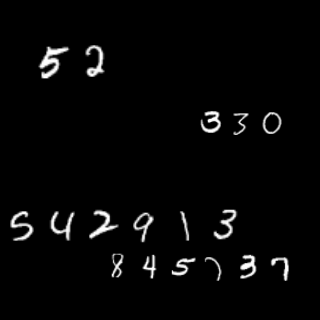 52
330
542913
845737